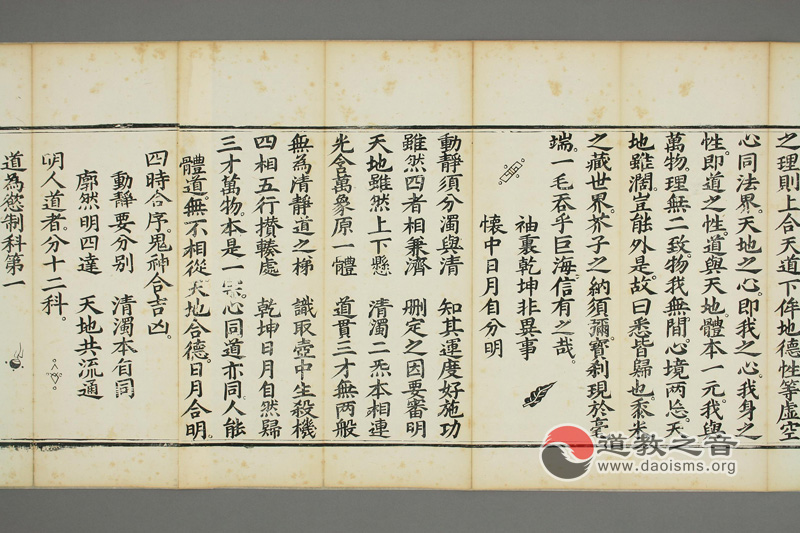 之理則上合天道下侔地德性等虛空
心同法界。天地之心。即我之心。我身之
性。即道之性。道與天地。體本一元。我與
萬物。理無二致。物我無間。心境兩忘。天
地雖濶。豈能外是。故曰悉皆歸也。黍米
之藏世界。芥子之納須彌。寶剎現於毫
端。一毛吞乎巨海。信有之哉。
袖裏乾坤非異事
懷中日月自分明
動靜須分濁與清　知其運度好施功
雖然四者相兼濟　刪定之因要審明
天地雖然上下懸　清濁二炁本相連
光含萬象原一體　道貫三才無兩般
無為清靜道之梯　識取壺中生殺機
四相五行攅輳處　乾坤日月自然歸
三才萬物。本是一。心同道亦同。人能
體道。無不相從。天地合德。日月合明。
四時合序。鬼神合吉凶。
動靜要分別　清濁本自同
廓然明四達　天地共流通
明人道者。分十二科。
道為慾制科第一
道教之音
www.daoisms.org